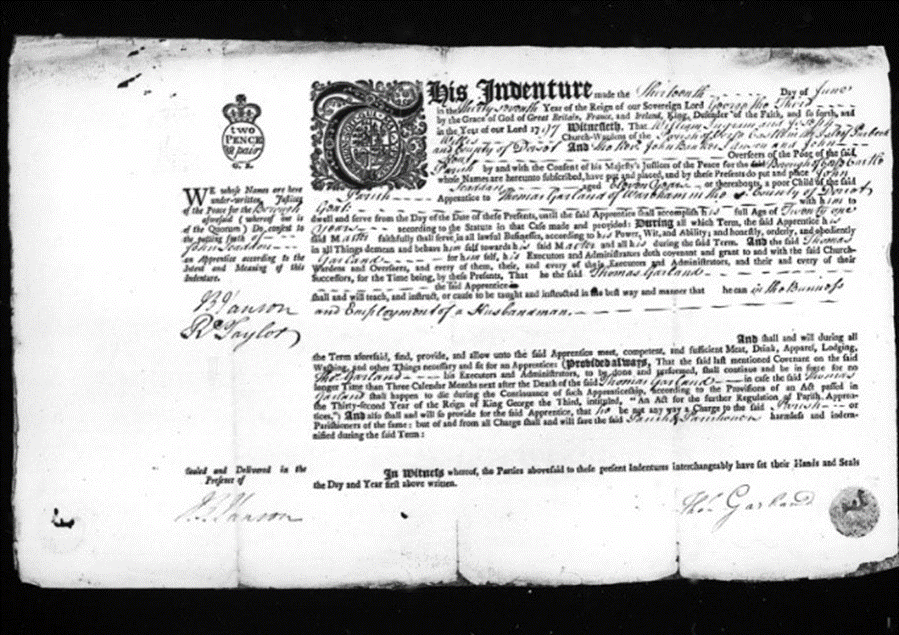 This Indenture made the Thirteenth Day of June
in the Thirty seventh Year of the Reign of our Sovereign Lord George the Third
by the Grace of God of Great Britain, France, and Ireland, King, Defender of the Faith, and so forth, and
in the Year of our Lord 1797 Witnesseth, That William Ingram and Joseph
Church-Wardens of the Parish of Corfe Castle in the Isle of Purbeck
and County of Dorset And the Rev. John and John
Overseers of the Poor of the said
Parish by and with the Consent of his Majesty's Justices of the Peace for the said Borough of Corfe Castle
whose Names are hereunto subscribed, have put and placed, and by these Presents do put and place John
aged Eleven Years or thereabouts, a poor Child of the said
Parish Apprentice to Thomas Garland of Wareham in the County of Dorset
with him to
dwell and serve from the Day of the Date of these Presents, until the said Apprentice shall accomplish his full Age of Twenty one
Years according to the Statute in that Case made and provided: During all which Term, the said Apprentice his
said Master faithfully shall serve in all lawful Businesses, according to his Power, Wit, and Ability; and honestly, orderly, and obediently
in all Things demean and behave him self towards his said Master and all his during the said Term. And the said Thomas
Garland for him self, his Executors and Administrators doth covenant and grant to and with the said Church-
Wardens and Overseers, and every of them, their, and every of their Executors and Administrators, and their and every of their
Successors, for the Time being, by these Presents, That he the said Thomas Garland
the said Apprentice
shall and will teach, and instruct, or cause to be taught and instructed in the best way and manner that he can in the Business
and Employment of a Husbandman.
And shall and will during all
the Term aforesaid, find, provide, and allow unto the said Apprentice meet, competent, and sufficient Meat, Drink, Apparel, Lodging,
Washing, and other Things necessary and fit for an Apprentice: (Provided always, That the said last mentioned Covenant on the said
Tho. Garland his Executors and Administrators, to be done and performed, shall continue and be in force for no
longer Time than Three Calendar Months next after the Death of the said Thomas Garland in case the said Thomas
Garland shall happen to die during the Continuance of such Apprenticeship, according to the Provisions of an Act passed in
the Thirty-second Year of the Reign of King George the Third, intituled, "An Act for the further Regulation of Parish Appren-
tices.") And also shall and will so provide for the said Apprentice, that he be not any way a Charge to the said Parish or
Parishioners of the same: but of and from all Charge shall and will save the said Parish & Parishioners harmless and indem-
nified during the said Term:
In Witness whereof, the Parties abovesaid to these present Indentures interchangeably have set their Hands and Seals
the Day and Year first above written.
Thos. Garland
TWO
PENCE
WE whose Names are here
under-written, Justices
of the Peace for the Borough
aforesaid (whereof one is
of the Quorum) Do consent to
the putting forth of
John
an Apprentice according to the
Intent and Meaning of this
Indenture.
Rd. Taylor
Sealed and Delivered in the
Presence of